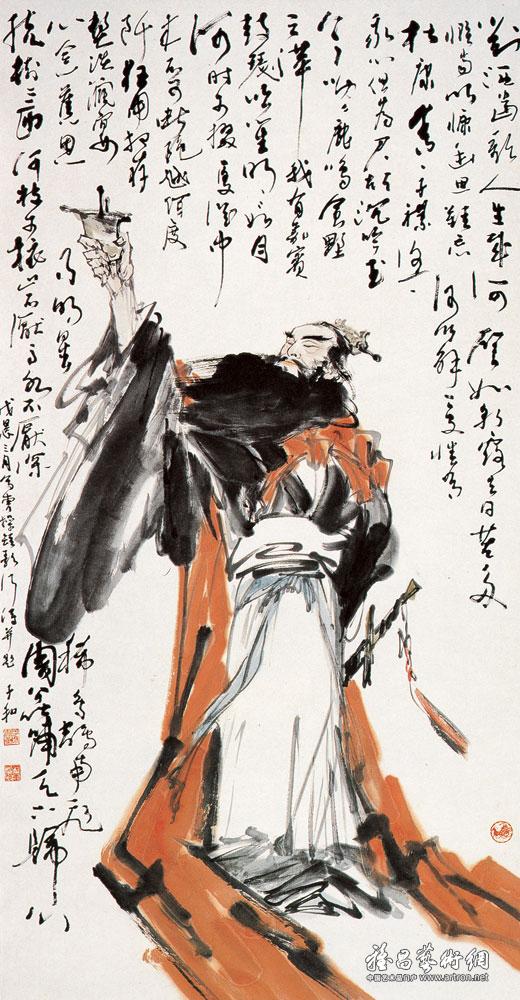 對酒當歌人生幾何譬如朝露去日苦多
慨當以慷幽思難忘何以解憂惟有
杜康青青子襟悠悠
我心但為君故沉吟至
今呦呦鹿鳴食野
之苹我有嘉賓
鼓瑟吹笙明明如月
何時可掇憂從中
來不可斷絕越陌度
阡枉用相存
契闊談宴
心念舊恩
月明星
稀烏鵲南飛
繞樹三匝何枝可依山不厭高水不厭深
周公吐哺天下歸心
戊辰三月寫曹操短歌行詩并題
雅昌藝術網
中国艺术品门户 www.artron.net